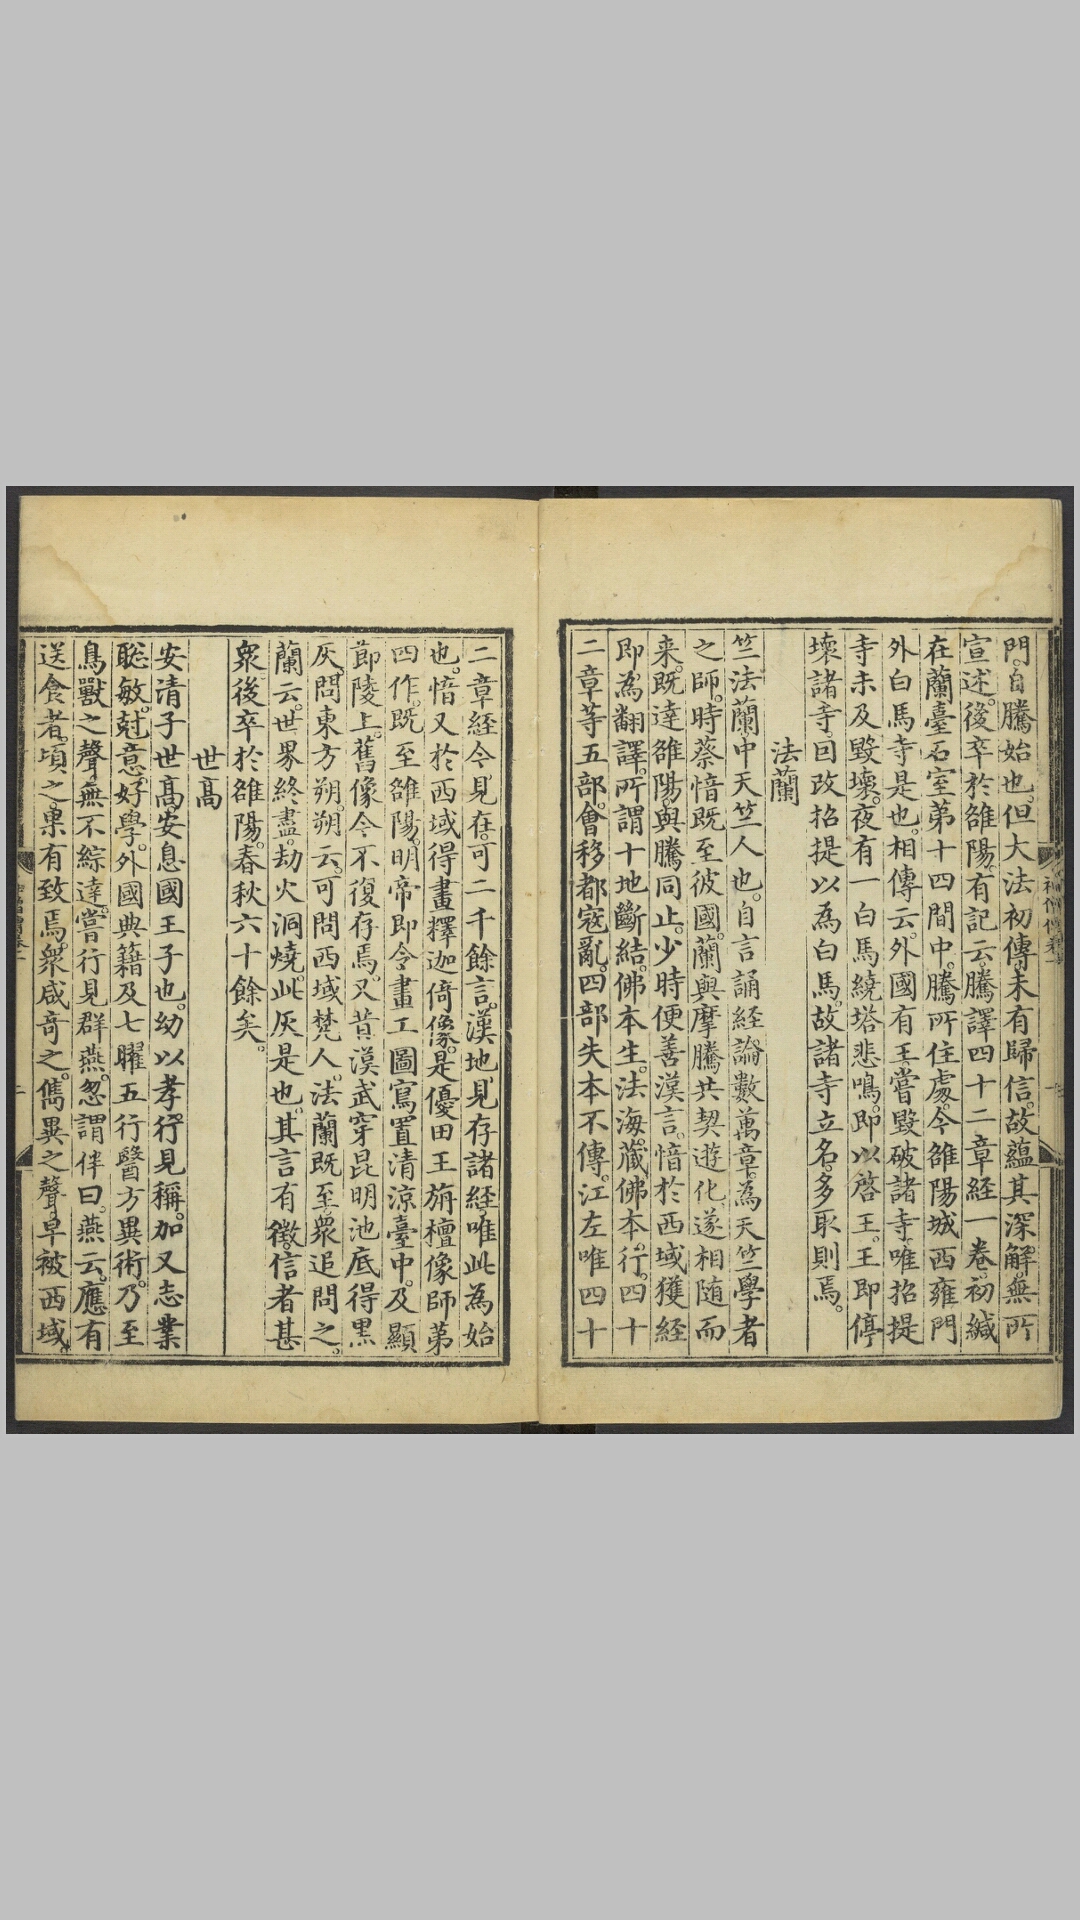 門。自騰始也。但大法初傳。未有歸信。故蘊其深解。無所
宣述。後卒於雒陽。有記云。騰譯四十二章經一卷。初緘
在蘭臺石室第十四間中。騰所住處。今雒陽城西雍門
外白馬寺是也。相傳云。外國有王。嘗毀破諸寺。唯招提
寺未及毀壞。夜有一白馬繞塔悲鳴。即以啓王。王即停
壞諸寺。因改招提以為白馬。故諸寺立名。多取則焉。
法蘭
竺法蘭中天竺人也。自言誦經論數萬章。為天竺學者
之師。時蔡愔既至彼國。蘭與摩騰共契遊化。遂相隨而
来。既達雒陽。與騰同止。少時便善漢言。愔於西域獲經
即為翻譯。所謂十地斷結。佛本生。法海藏。佛本行。四十
二章等五部。會移都寇亂。四部失本不傳。江左唯四十
二章經今見在。可二千餘言。漢地見存諸經。唯此為始
也。愔又於西域得畫釋迦倚像。是優田王旃檀像師第
四作。既至雒陽。明帝即令畫工圖寫置清涼臺中。及顯
節陵上。舊像今不復存焉。又昔漢武穿昆明池底得黑
灰。問東方朔。朔云。可問西域梵人。法蘭既至。衆追問之。
蘭云。世界終盡。劫火洞燒。此灰是也。其言有徵。信者甚
衆。後卒於雒陽。春秋六十餘矣。
世高
安清子世高。安息國王子也。幼以孝行見稱。加又志業
聡敏。尅意好學。外國典籍及七曜五行醫方異術。乃至
鳥獸之聲。無不綜達。嘗行見群燕。忽謂伴曰。燕云。應有
送食者。頃之。果有致焉。衆咸奇之。雋異之聲。早被西域。